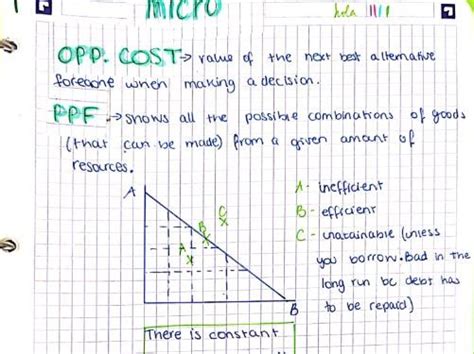 MICRO
hola 11/1
OPP. COST → value of the next best alternative
foregone when making a decision.
PPF → shows all the possible combinations of goods
(that can be made) from a given amount of
resources.
A
A - inefficient
B - efficient
C - unatainable (unless
you borrow. Bad in the
long run bc debt has
to be repaid)
C
B
A
B
There is constant